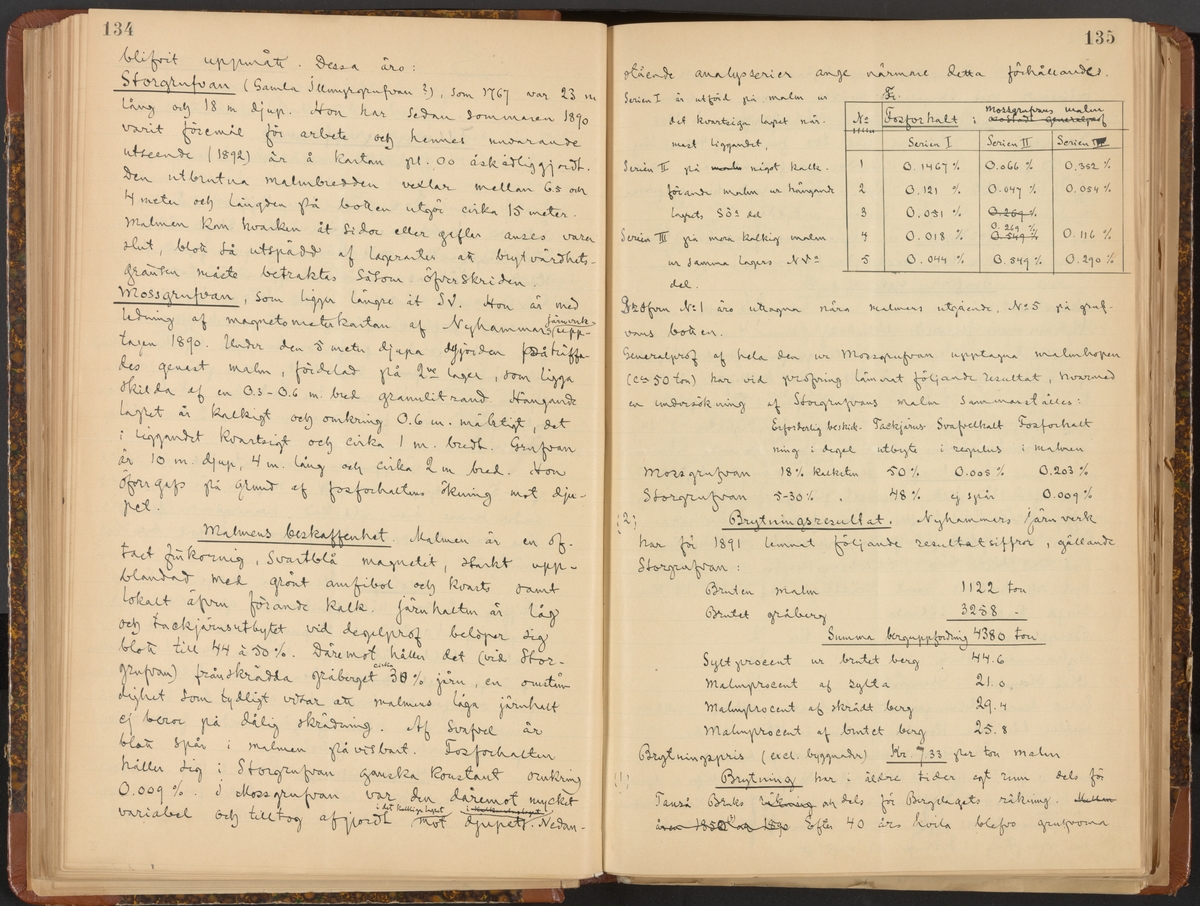 134
blifvit uppmätt. Dessa äro:
Storgrufvan (Gamla Illmyrgrufvan?), som 1767 var 23 m
lång och 18 m djup. Hon har sedan sommaren 1890
varit föremål för arbete och hennes nuvarande
utseende (1892) är å kartan pl. 00 åskådliggjordt.
Den utbrutna malmbredden vexlar mellan 6.5 och
4 meter och längden på botten utgör cirka 15 meter.
Malmen kan hvarken åt sidor eller gaflar anses vara
slut, blott så utspädd af lagerarter att brytvärdhets-
gränsen måste betraktas såsom öfverskriden.
Mossgrufvan, som ligger längre åt SV. Hon är med
ledning af magnetometerkartan af Nyhammars järnverk upp-
tagen 1890. Under den 5 meter djupa jorden träffa-
des genast malm, fördelad på 2ne lager, som ligga
skilda af en 0.3-0.6 m. bred granulitrand. Hängande
lagret är kalkigt och omkring 0.6 m. mäktigt, det
i liggandet kvartsigt och cirka 1 m. bredt. Grufvan
är 10 m. djup, 4 m. lång och cirka 2 m bred. Hon
öfvergafs på grund af fosforhaltens ökning mot dju-
pet.
Malmens beskaffenhet. Malmen är en of-
tast finkornig, svartblå magnetet, starkt upp-
blandad med grönt amfibol och kvarts samt
lokalt äfven förande kalk. Järnhalten är låg
och tackjärnsutbytet vid degelprof belöper sig
blott till 44 à 50%. Däremot håller det (vid Stor-
grufvan) frånskrädda gråberget cirka 30% järn, en omstän-
dighet som tydligt visar att malmens låga järnhalt
ej beror på dålig skrädning. Af svafvel är
blott spår i malmen påvisbart. Fosforhalten
håller sig i Storgrufvan ganska konstant omkring
0.009%. I Mossgrufvan var den däremot mycket
variabel och tilltog afgjordt i det kalkiga lagret mot djupet. Nedan-
135
stående analysserier ange närmare detta förhållande.
Serien I är utförd på malm ur
det kvartsiga lagret när-
mast liggandet,
Serien II på något kalk-
förande malm ur hängande
lagrets SÖa del
Serien III på mera kalkig malm
ur samma lagers NVa
del.
No Fosforhalt i Mossgrufvans malm
Serien I Serien II Serien III
1 0.1467 % 0.066 % 0.352 %
2 0.121 % 0.047 % 0.054 %
3 0.051 % 0.269 %
4 0.018 % 0.269 % 0.549 % 0.116 %
5 0.044 % 0.549 % 0.290 %
Profven No 1 äro uttagna nära malmens utgående, No 5 på gruf-
vans botten.
Generalprof af hela den ur Mossgrufvan upptagna malmhopen
(ca 50 ton) har vid profning lämnat följande resultat, hvarmed
en undersökning af Storgrufvans malm sammanställes:
Erforderlig beskick- Tackjärns Svafvelhalt Fosforhalt
ning i degel utbyte i regulus i malmen
Mossgrufvan 18% kalksten 50% 0.005 % 0.203 %
Storgrufvan 5-30% " 48% ej spår 0.009 %
(2) Brytningsresultat. Nyhammars järnverk
har för 1891 lemnat följande resultatsiffror, gällande
Storgrufvan:
Bruten malm 1122 ton
Brutet gråberg 3258 -
Summa berguppfordring 4380 ton
Syltprocent ur brutet berg 44.6
Malmprocent af sylta 21.0
Malmprocent af skrädt berg 29.4
Malmprocent af brutet berg 25.8
Brytningspris (excl. byggnader) Kr. 7.33 per ton malm
(1) Brytning har i äldre tider egt rum dels för
Tanså Bruks räkning och dels för Bergslagets räkning. Mellan
åren 1850 och 1890 Efter 40 års hvila blefvo grufvorna